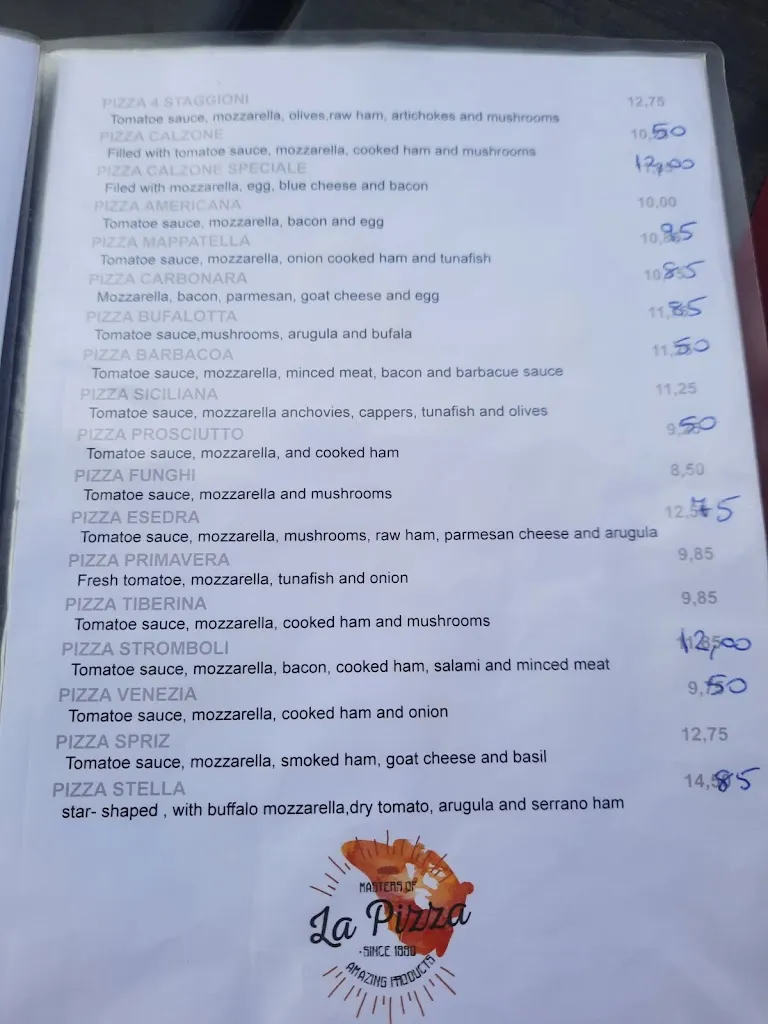 PIZZA 4 STAGGIONI 12,75
Tomatoe sauce, mozzarella, olives,raw ham, artichokes and mushrooms
PIZZA CALZONE 10,50
Filled with tomatoe sauce, mozzarella, cooked ham and mushrooms
PIZZA CALZONE SPECIALE 12,00
Filed with mozzarella, egg, blue cheese and bacon
PIZZA AMERICANA 10,00
Tomatoe sauce, mozzarella, bacon and egg
PIZZA MAPPATELLA 10,95
Tomatoe sauce, mozzarella, onion cooked ham and tunafish
PIZZA CARBONARA 10,85
Mozzarella, bacon, parmesan, goat cheese and egg
PIZZA BUFALOTTA 11,85
Tomatoe sauce,mushrooms, arugula and bufala
PIZZA BARBACOA 11,50
Tomatoe sauce, mozzarella, minced meat, bacon and barbacue sauce
PIZZA SICILIANA 11,25
Tomatoe sauce, mozzarella anchovies, cappers, tunafish and olives
PIZZA PROSCIUTTO 9,50
Tomatoe sauce, mozzarella, and cooked ham
PIZZA FUNGHI 8,50
Tomatoe sauce, mozzarella and mushrooms
PIZZA ESEDRA 12,75
Tomatoe sauce, mozzarella, mushrooms, raw ham, parmesan cheese and arugula
PIZZA PRIMAVERA 9,85
Fresh tomatoe, mozzarella, tunafish and onion
PIZZA TIBERINA 9,85
Tomatoe sauce, mozzarella, cooked ham and mushrooms
PIZZA STROMBOLI 12,00
Tomatoe sauce, mozzarella, bacon, cooked ham, salami and minced meat
PIZZA VENEZIA 9,50
Tomatoe sauce, mozzarella, cooked ham and onion
PIZZA SPRIZ 12,75
Tomatoe sauce, mozzarella, smoked ham, goat cheese and basil
PIZZA STELLA 14,85
star- shaped , with buffalo mozzarella,dry tomato, arugula and serrano ham
MASTERS OF
La Pizza
-SINCE 1880-
AMAZING PRODUCTS